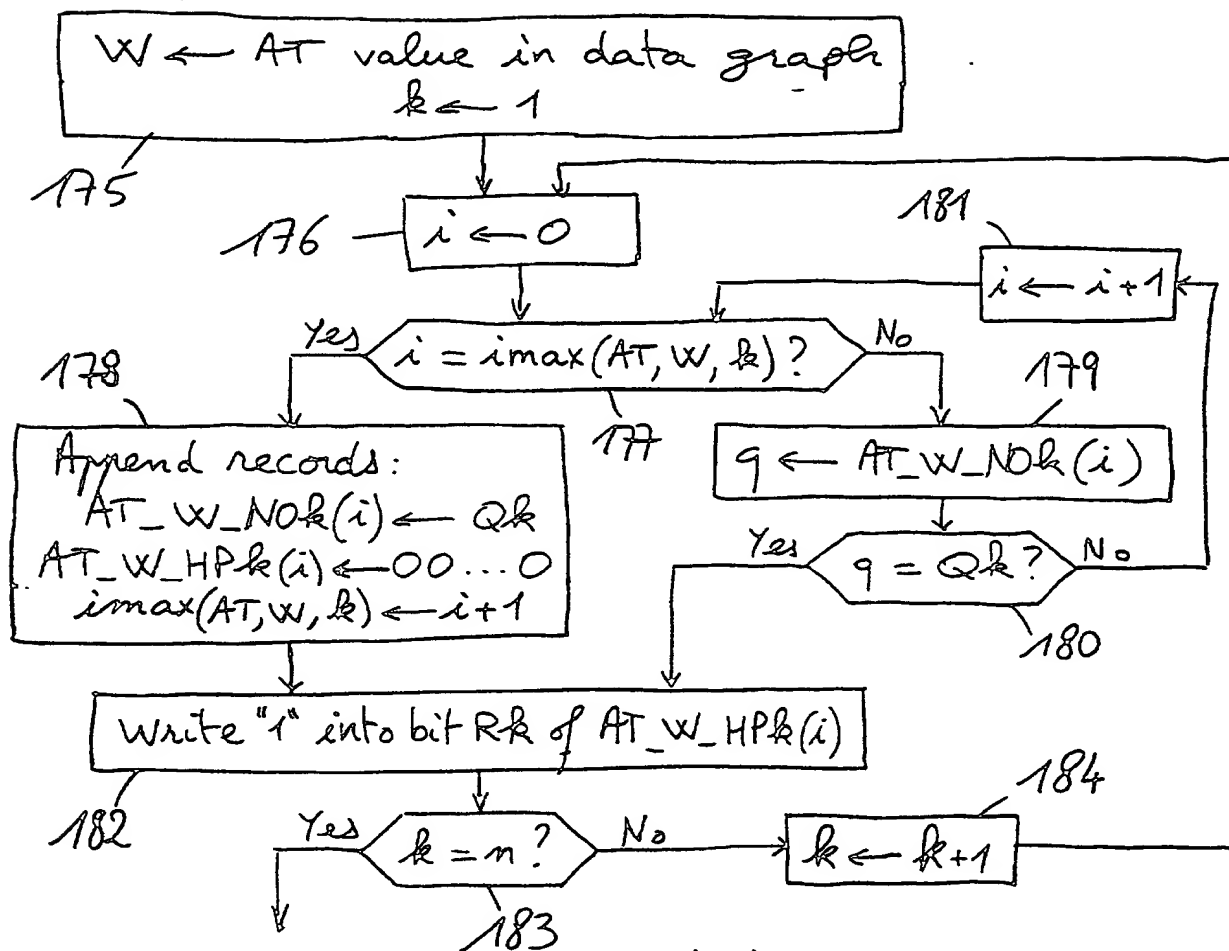 W ← AT value in data graph
k ← 1
175
176
i ← 0
181
i ← i+1
Yes
i = imax(AT, W, k)?
No
177
178
179
Append records:
AT_W_NOk(i) ← Qk
AT_W_HPk(i) ← 00...0
imax(AT, W, k) ← i+1
q ← AT_W_NOk(i)
Yes
q = Qk?
No
180
Write "1" into bit Rk of AT_W_HPk(i)
182
184
Yes
k = n?
No
k ← k+1
183